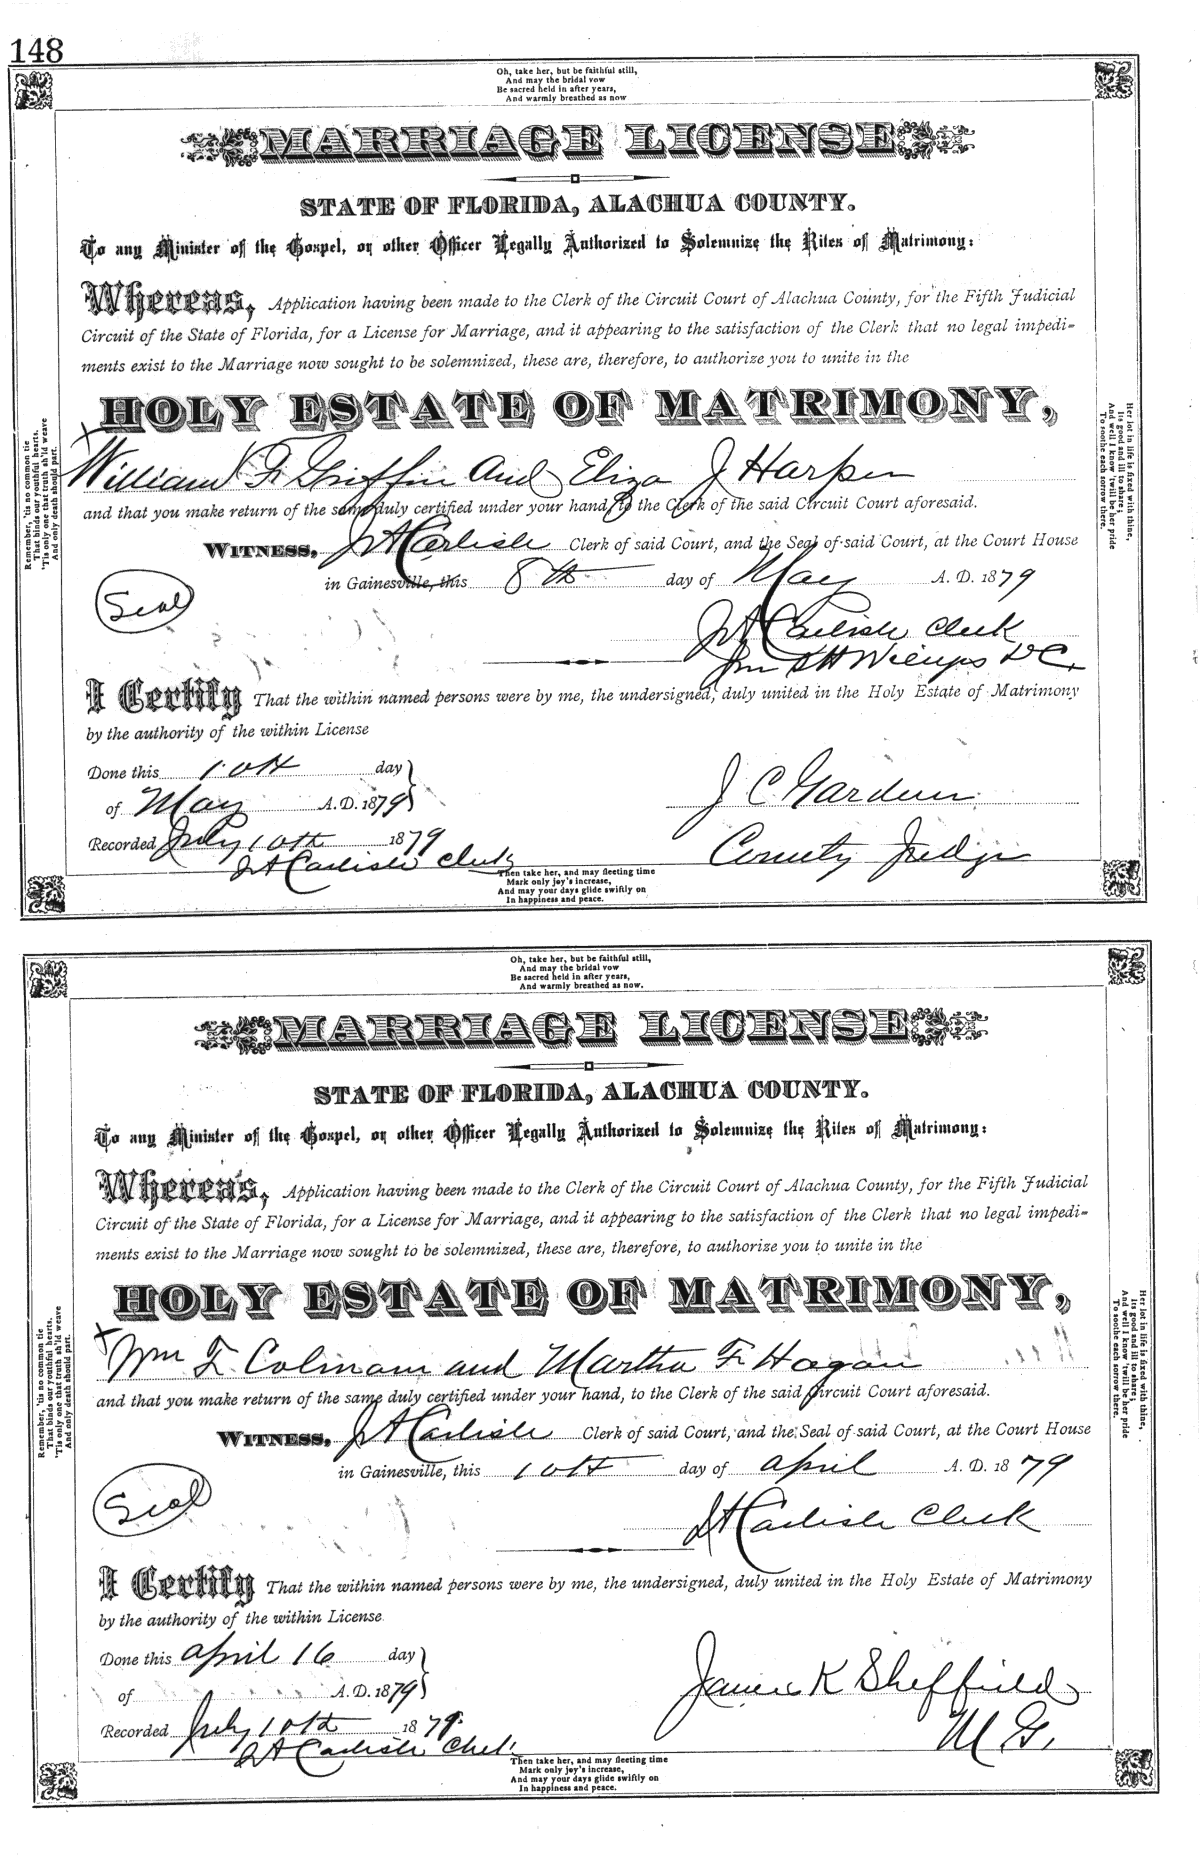 148
Oh, take her, but be faithful still,
And may the bridal vow
Be sacred held in after years,
And warmly breathed as now
MARRIAGE LICENSE
STATE OF FLORIDA, ALACHUA COUNTY.
To any Minister of the Gospel, or other Officer Legally Authorized to Solemnize the Rites of Matrimony:
Whereas, Application having been made to the Clerk of the Circuit Court of Alachua County, for the Fifth Judicial
Circuit of the State of Florida, for a License for Marriage, and it appearing to the satisfaction of the Clerk that no legal impedi-
ments exist to the Marriage now sought to be solemnized, these are, therefore, to authorize you to unite in the
HOLY ESTATE OF MATRIMONY,
X
William F. Griffin and Eliza J Harper
and that you make return of the same duly certified under your hand, to the Clerk of the said Circuit Court aforesaid.
WITNESS, J A Carlisle Clerk of said Court, and the Seal of said Court, at the Court House
in Gainesville, this 8th day of May A. D. 1879
Seal
J A Carlisle Clerk
D C.
I Certify That the within named persons were by me, the undersigned, duly united in the Holy Estate of Matrimony
by the authority of the within License
Done this 10th day
of May A.D. 1879
J C Gardner
Recorded July 10th 1879
County Judge
J A Carlisle Clerk
Remember, 'tis no common tie
That binds our youthful hearts.
'Tis only one that truth sh'ld weave
And only death should part.
Her lot in life is fixed with thine,
Its good and ill to share;
And well I know 'twill be her pride
To soothe each sorrow there.
Then take her, and may fleeting time
Mark only joy's increase,
And may your days glide swiftly on
In happiness and peace.
Oh, take her, but be faithful still,
And may the bridal vow
Be sacred held in after years,
And warmly breathed as now.
MARRIAGE LICENSE
STATE OF FLORIDA, ALACHUA COUNTY.
To any Minister of the Gospel, or other Officer Legally Authorized to Solemnize the Rites of Matrimony:
Whereas, Application having been made to the Clerk of the Circuit Court of Alachua County, for the Fifth Judicial
Circuit of the State of Florida, for a License for Marriage, and it appearing to the satisfaction of the Clerk that no legal impedi-
ments exist to the Marriage now sought to be solemnized, these are, therefore, to authorize you to unite in the
HOLY ESTATE OF MATRIMONY,
X
Wm F. Colmam and Martha F. Hagan
and that you make return of the same duly certified under your hand, to the Clerk of the said Circuit Court aforesaid.
WITNESS, J A Carlisle Clerk of said Court, and the Seal of said Court, at the Court House
in Gainesville, this 10th day of April A. D. 1879
Seal
J A Carlisle Clerk
I Certify That the within named persons were by me, the undersigned, duly united in the Holy Estate of Matrimony
by the authority of the within License
Done this April 16 day
of A.D. 1879
James K Sheffield
Recorded July 10th 1879.
M G.
J A Carlisle Clerk
Remember, 'tis no common tie
That binds our youthful hearts.
'Tis only one that truth sh'ld weave
And only death should part.
Her lot in life is fixed with thine,
Its good and ill to share;
And well I know 'twill be her pride
To soothe each sorrow there.
Then take her, and may fleeting time
Mark only joy's increase,
And may your days glide swiftly on
In happiness and peace.